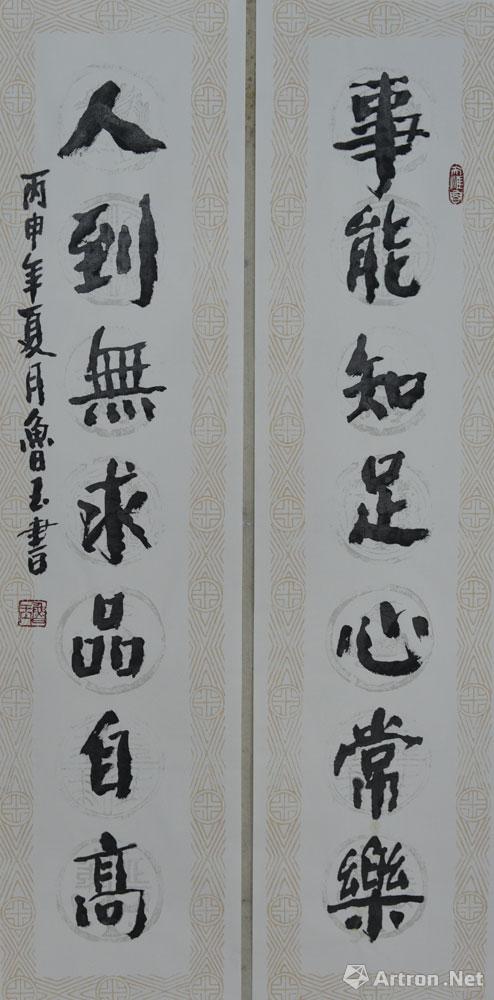 事能知足心常樂
人到無求品自高
丙申年夏月魯玉書
Artron.Net